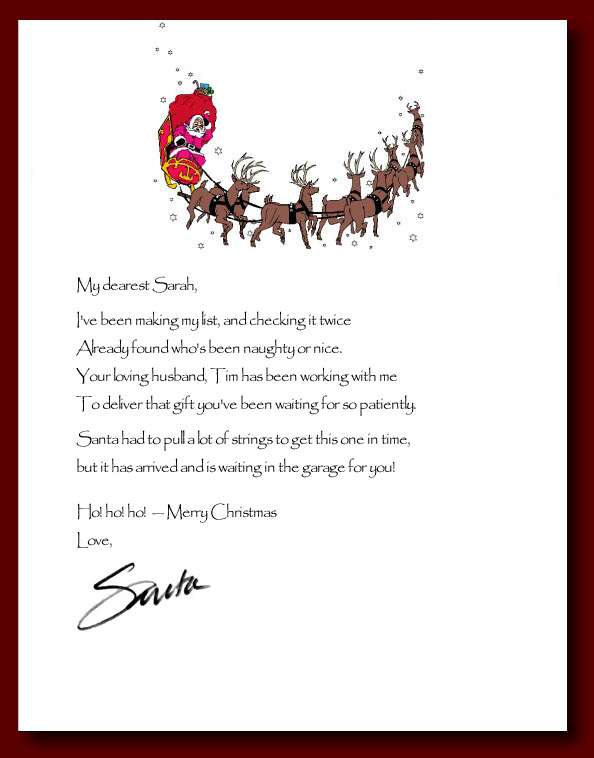 My dearest Sarah,
I've been making my list, and checking it twice
Already found who's been naughty or nice.
Your loving husband, Tim has been working with me
To deliver that gift you've been waiting for so patiently.
Santa had to pull a lot of strings to get this one in time,
but it has arrived and is waiting in the garage for you!
Ho! ho! ho! — Merry Christmas
Love,
Santa